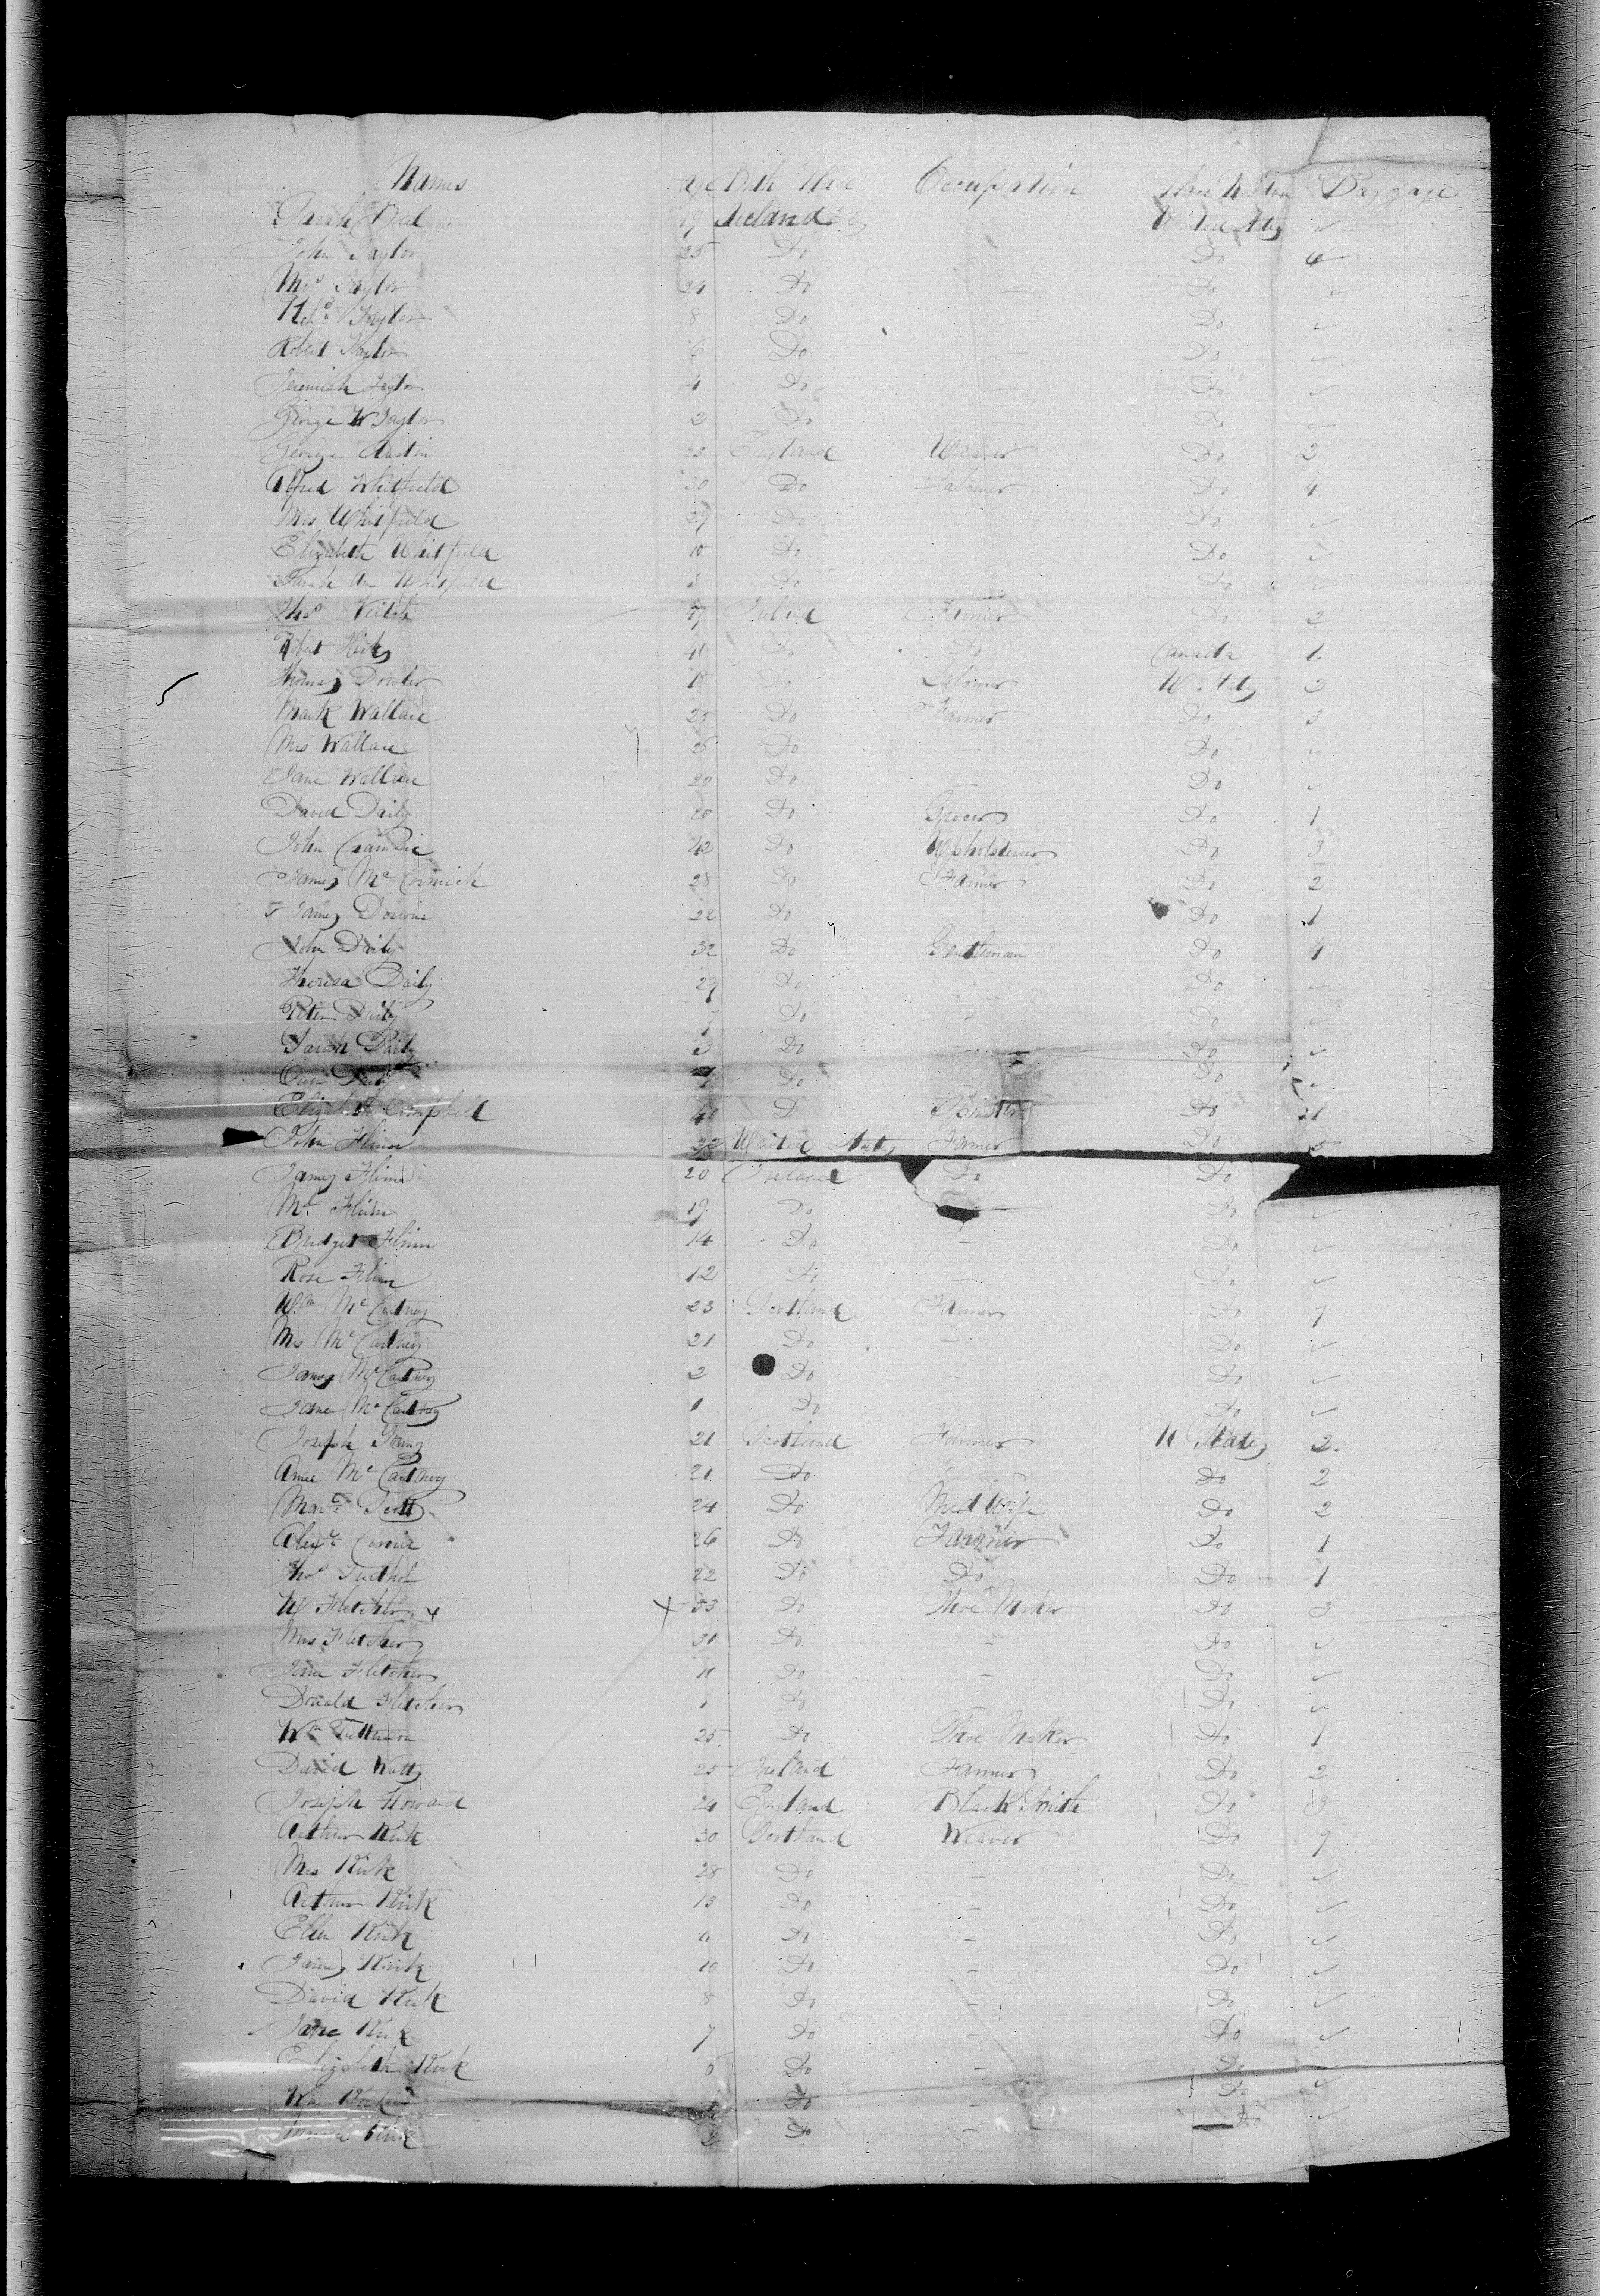 Names Age Birth Place Occupation Baggage
Sarah 19 Ireland United States ✓
John Taylor 25 Do Do 6
Mrs Taylor 24 Do — Do ✓
Taylor 8 Do — Do ✓
Robert Taylor 6 Do — Do ✓
Jeremiah Taylor 4 Do Do ✓
George W Taylor 2 Do — Do ✓
George Austin 23 England Weaver Do 2
Alfred Whitfield 30 Do Labourer Do 4
Mrs Whitfield 29 Do Do ✓
Elizabeth Whitfield 10 Do Do ✓
Sarah Ann Whitfield Do Do ✓
Thos Veitch 47 Ireland Farmer Do 2
41 Do Do Canada 1.
Thomas Dowler 18 Do Labourer U. States 2
Mark Wallace 25 Do Farmer Do 3
Mrs Wallace 25 Do — Do ✓
Jane Wallace 20 Do Do ✓
David Daily 20 Do Grocer Do 1
John 42 Do Upholsterer Do 3
James Mc Cormick 28 Do Farmer Do 2
James 22 Do Do 1
John Daily 32 Do Gentleman Do 4
Theresa Daily 29 Do Do ✓
Peter Daily 7 Do — Do ✓
Sarah Daily 3 Do Do ✓
Daily Do Do ✓
Elizabeth Campbell 40 D Spinster Do 1
John Flinn 22 United States Farmer Do 5
James Flinn 20 Ireland Do Do
Flinn 19 Do — Do ✓
Bridget Flinn 14 Do — Do ✓
Rose Flinn 12 Do — Do ✓
Wm Mc Cartney 23 Scotland Farmer Do 7
Mrs Mc Cartney 21 Do — Do ✓
James Mc Cartney 2 Do — Do ✓
Jane Mc Cartney 1 Do — Do ✓
Joseph Young 21 Scotland Farmer U States 2.
Anne Mc Cartney 21 Do Do 2
Scott 24 Do Mid Wife Do 2
Alexr 26 Do Farmer Do 1
Thos 22 Do Do Do 1
W Fletcher x x 33 Do Shoe Maker Do 3
Mrs Fletcher 31 Do — Do ✓
Jane Fletcher 11 Do — Do ✓
Donald Fletcher 1 Do Do ✓
Wm 25 Do Shoe Maker Do 1
David Watts 25 Ireland Farmer Do 2
Joseph Howard 24 England Black Smith Do 3
Arthur Kirk 30 Scotland Weaver Do 7
Mrs Kirk 28 Do — Do ✓
Arthur Kirk 13 Do — Do ✓
Ellen Kirk 11 Do — Do ✓
James Kirk 10 Do — Do ✓
David Kirk 8 Do — Do ✓
Jane Kirk 7 Do — Do ✓
Elizabeth Kirk 5 Do — Do ✓
Wm Do — Do ✓
Kirk 2 Do — Do ✓